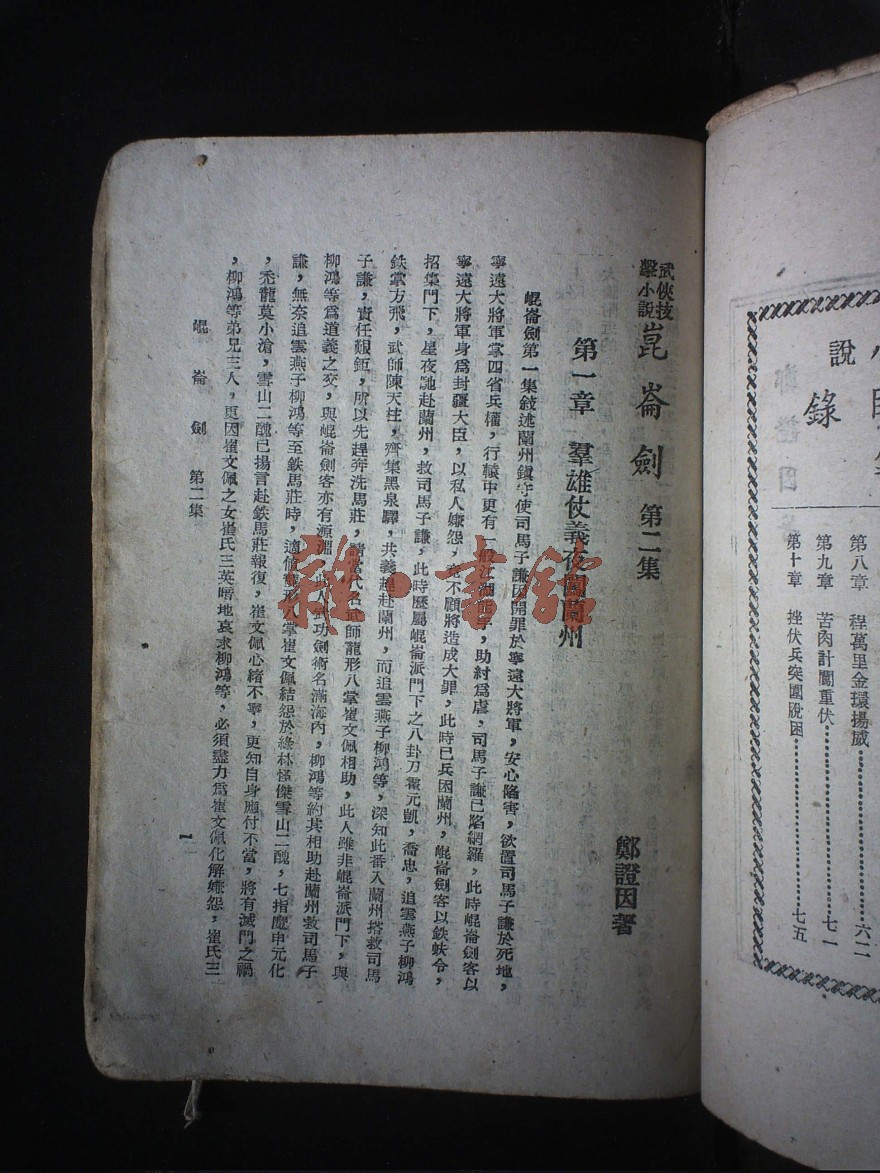 說
錄
第八章 程萬里金環揚威……………六二
第九章 苦肉計闖重伏……………七一
第十章 挫伏兵突圍脫困……………七五
武俠技擊小說 崑崙劍 第二集
鄭證因著
第一章 羣雄仗義夜闖蘭州
崐崙劍第一集敘述蘭州鎮守使司馬子謙因開罪於寧遠大將軍，安心陷害，欲置司馬子謙於死地，
寧遠大將軍掌四省兵權，行轅中更有一般江湖，助紂爲虐，司馬子謙已陷網羅，此時崐崙劍客以
寧遠大將軍身爲封疆大臣，以私人嫌怨，竟不顧將造成大罪，此時已兵困蘭州，崐崙劍客以鉄蚨令，
招集門下，星夜馳赴蘭州，救司馬子謙，此時歷屬崐崙派門下之八卦刀霍元凱，喬忠，追雲燕子柳鴻
鉄掌方飛，武師陳天柱，齊集黑泉驛，共義趕赴蘭州，而追雲燕子柳鴻等，深知此番入蘭州搭救司馬
子謙，責任艱鉅，所以先趕奔洗馬莊，請當代名武師龍形八掌崔文佩相助，此人雖非崐崙派門下，與
柳鴻等爲道義之交，與崐崙劍客亦有源淵，此人武功劍術名滿海內，柳鴻等約其相助赴蘭州救司馬子
謙，無奈追雲燕子柳鴻等至鉄馬莊時，適值龍形八掌崔文佩結怨於綠林怪傑雪山二醜，七指魔申元化
，禿龍莫小滄，雪山二醜已揚言赴鉄馬莊報復，崔文佩心緒不寧，更知自身應付不當，將有滅門之禍
，柳鴻等弟兄三人，更因崔文佩之女崔氏三英暗地哀求柳鴻等，必須盡力爲崔文佩化解嫌怨，崔氏三
崐崙劍 第二集
一
雜·書館